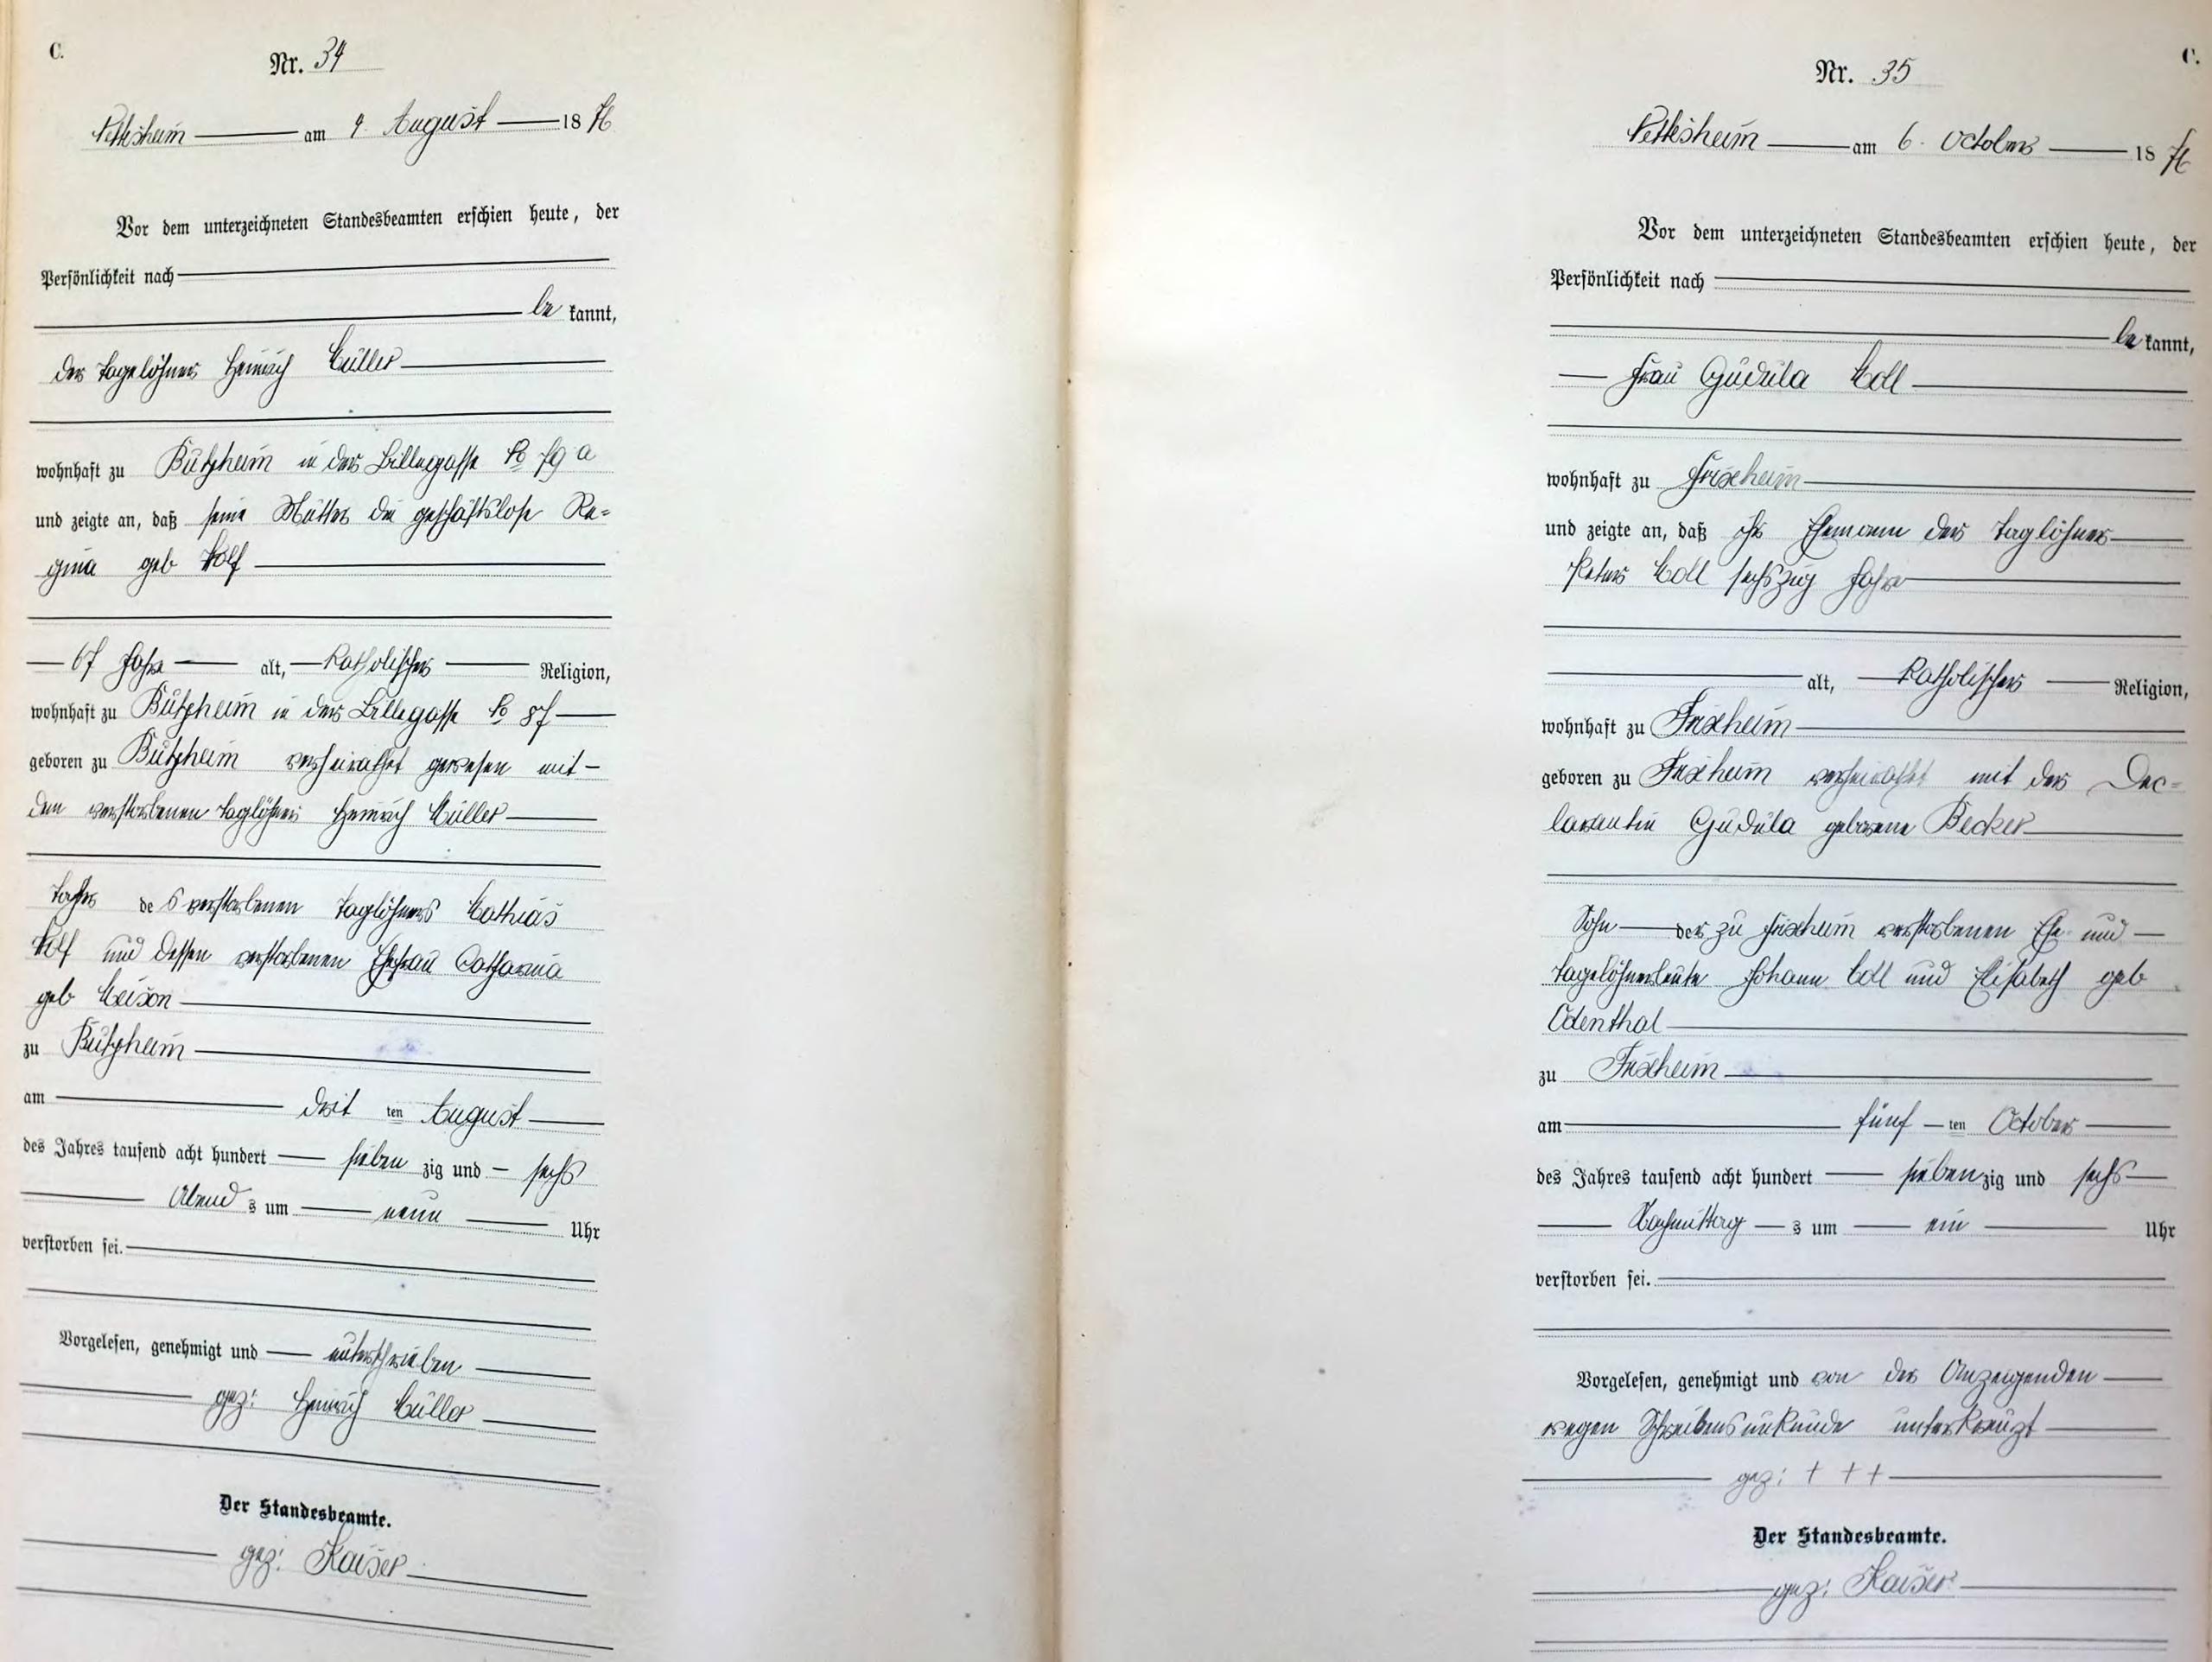 C.
Nr. 34
Nettesheim am 4. August 1876
Vor dem unterzeichneten Standesbeamten erschien heute, der
Persönlichkeit nach
be kannt,
der Tagelöhner Heinrich Müller
wohnhaft zu Bützheim in der Lillegasse No 79 a
und zeigte an, daß seine Mutter die geschäftslose Re=
gina geb
67 Jahre alt, Katholischer Religion,
wohnhaft zu Bützheim in der Lillegasse No 87
geboren zu Bützheim verheirathet gewesen mit
dem verstorbenen Taglöhner Heinrich Müller
Tochter des verstorbenen Taglöhners Mathias
und dessen verstorbenen Ehefrau Catharina
geb
zu Bützheim
am drit ten August
des Jahres tausend acht hundert sieben zig und sechs
Abend s um neun Uhr
verstorben sei.
Vorgelesen, genehmigt und unterschrieben
gez: Heinrich Müller
Der Standesbeamte.
gez: Kaiser
C.
Nr. 35
Nettesheim am 6. October 1876
Vor dem unterzeichneten Standesbeamten erschien heute, der
Persönlichkeit nach
be kannt,
Frau Gudula Moll
wohnhaft zu Frixheim
und zeigte an, daß ihr Ehemann der Taglöhner
Peter Moll sechszig Jahre
alt, Katholischer Religion,
wohnhaft zu Frixheim
geboren zu Frixheim verheirathet mit der Dec=
larantin Gudula geborene Becker
Sohn der zu Frixheim verstorbenen Ehe und
Tagelöhnerleute Johann Moll und Elisabeth geb
Odenthal
zu Frixheim
am fünf ten October
des Jahres tausend acht hundert sieben zig und sechs
Nachmittag s um ein Uhr
verstorben sei.
Vorgelesen, genehmigt und von der Anzeigenden
wegen Schreibensunkunde unterkreuzt
gez: + + +
Der Standesbeamte.
gez: Kaiser